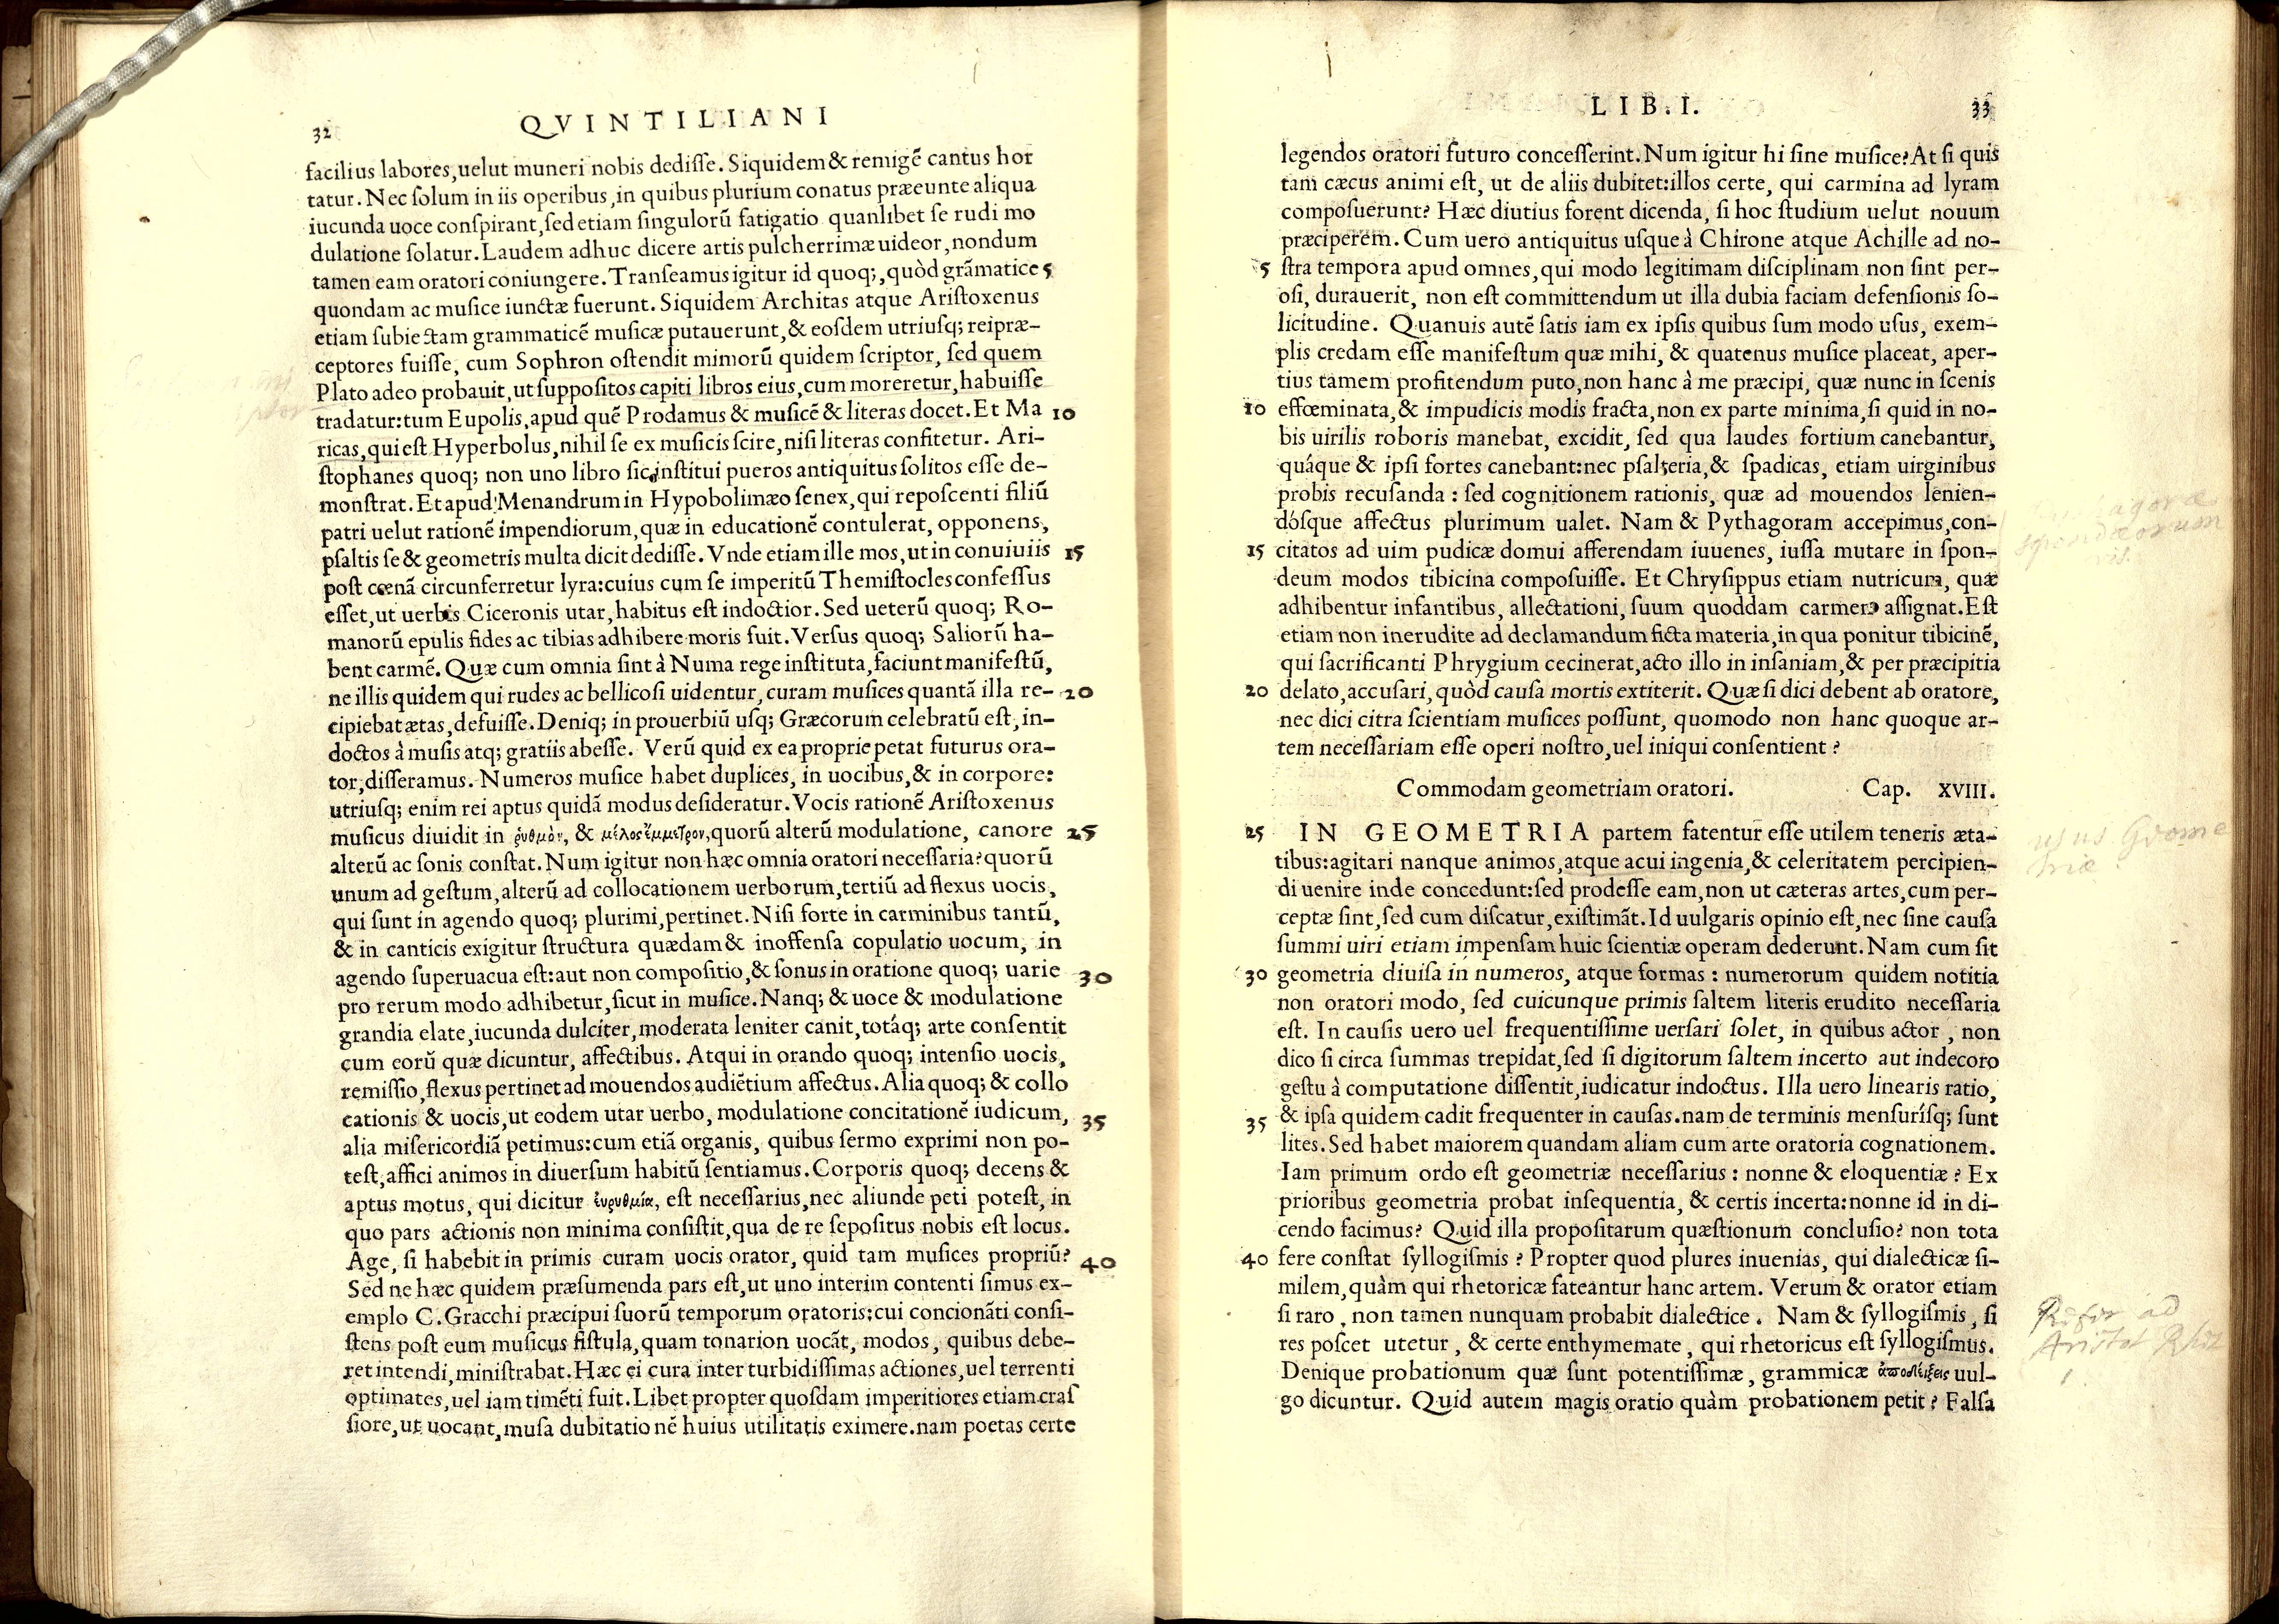 32
QVINTILIANI
facilius labores, uelut muneri nobis dediſſe. Siquidem & remigē cantus hor
tatur. Nec ſolum in iis operibus, in quibus plurium conatus præeunte aliqua
iucunda uoce conſpirant, ſed etiam ſingulorū fatigatio quanlibet ſe rudi mo
dulatione ſolatur. Laudem adhuc dicere artis pulcherrimæ uideor, nondum
tamen eam oratori coniungere. Tranſeamus igitur id quoq;, quòd grāmatice 5
quondam ac muſice iunctæ fuerunt. Siquidem Architas atque Ariſtoxenus
etiam ſubiectam grammaticē muſicæ putauerunt, & eoſdem utriuſq; rei præ-
ceptores fuiſſe, cum Sophron oſtendit mimorū quidem ſcriptor, ſed quem
Plato adeo probauit, ut ſuppoſitos capiti libros eius, cum moreretur, habuiſſe
tradatur: tum Eupolis, apud quē Prodamus & muſicē & literas docet. Et Ma 10
ricas, qui eſt Hyperbolus, nihil ſe ex muſicis ſcire, niſi literas confitetur. Ari-
ſtophanes quoq; non uno libro ſic inſtitui pueros antiquitus ſolitos eſſe de-
monſtrat. Et apud Menandrum in Hypobolimæo ſenex, qui repoſcenti filiū
patri uelut rationē impendiorum, quæ in educationē contulerat, opponens,
pſaltis ſe & geometris multa dicit dediſſe. Vnde etiam ille mos, ut in conuiuiis 15
poſt cœnā circunferretur lyra: cuius cum ſe imperitū Themiſtocles confeſſus
eſſet, ut uerbis Ciceronis utar, habitus eſt indoctior. Sed ueterū quoq; Ro-
manorū epulis fides ac tibias adhibere moris fuit. Verſus quoq; Saliorū ha-
bent carmē. Quæ cum omnia ſint à Numa rege inſtituta, faciunt manifeſtū,
ne illis quidem qui rudes ac bellicoſi uidentur, curam muſices quantā illa re- 20
cipiebat ætas, defuiſſe. Deniq; in prouerbiū uſq; Græcorum celebratū eſt, in-
doctos à muſis atq; gratiis abeſſe. Verū quid ex ea proprie petat futurus ora-
tor, diſſeramus. Numeros muſice habet duplices, in uocibus, & in corpore:
utriuſq; enim rei aptus quidā modus deſideratur. Vocis rationē Ariſtoxenus
muſicus diuidit in ῥυθμὸν, & μέλος ἔμμετρον, quorū alterū modulatione, canore 25
alterū ac ſonis conſtat. Num igitur non hæc omnia oratori neceſſaria? quorū
unum ad geſtum, alterū ad collocationem uerborum, tertiū ad flexus uocis,
qui ſunt in agendo quoq; plurimi, pertinet. Niſi forte in carminibus tantū,
& in canticis exigitur ſtructura quædam & inoffenſa copulatio uocum, in
agendo ſuperuacua eſt: aut non compoſitio, & ſonus in oratione quoq; uarie 30
pro rerum modo adhibetur, ſicut in muſice. Nanq; & uoce & modulatione
grandia elate, iucunda dulciter, moderata leniter canit, totáq; arte conſentit
cum eorū quæ dicuntur, affectibus. Atqui in orando quoq; intenſio uocis,
remiſſio, flexus pertinet ad mouendos audiētium affectus. Alia quoq; & collo
cationis & uocis, ut eodem utar uerbo, modulatione concitationē iudicum, 35
alia miſericordiā petimus: cum etiā organis, quibus ſermo exprimi non po-
teſt, affici animos in diuerſum habitū ſentiamus. Corporis quoq; decens &
aptus motus, qui dicitur ἐυρυθμία, eſt neceſſarius, nec aliunde peti poteſt, in
quo pars actionis non minima conſiſtit, qua de re ſepoſitus nobis eſt locus.
Age, ſi habebit in primis curam uocis orator, quid tam muſices propriū? 40
Sed ne hæc quidem præſumenda pars eſt, ut uno interim contenti ſimus ex-
emplo C. Gracchi præcipui ſuorū temporum oratoris: cui concionāti conſi-
ſtens poſt eum muſicus fiſtula, quam tonarion uocāt, modos, quibus debe-
ret intendi, miniſtrabat. Hæc ei cura inter turbidiſſimas actiones, uel terrenti
optimates, uel iam timēti fuit. Libet propter quoſdam imperitiores etiam craſ
ſiore, ut uocant, muſa dubitationē huius utilitatis eximere. nam poetas certe
LIB. I.
33
legendos oratori futuro conceſſerint. Num igitur hi ſine muſice? At ſi quis
tam cæcus animi eſt, ut de aliis dubitet: illos certe, qui carmina ad lyram
compoſuerunt? Hæc diutius forent dicenda, ſi hoc ſtudium uelut nouum
præciperem. Cum uero antiquitus uſque à Chirone atque Achille ad no-
5 ſtra tempora apud omnes, qui modo legitimam diſciplinam non ſint per-
oſi, durauerit, non eſt committendum ut illa dubia faciam defenſionis ſo-
licitudine. Quanuis autē ſatis iam ex ipſis quibus ſum modo uſus, exem-
plis credam eſſe manifeſtum quæ mihi, & quatenus muſice placeat, aper-
tius tamem profitendum puto, non hanc à me præcipi, quæ nunc in ſcenis
10 effœminata, & impudicis modis fracta, non ex parte minima, ſi quid in no-
bis uirilis roboris manebat, excidit, ſed qua laudes fortium canebantur,
quáque & ipſi fortes canebant: nec pſalteria, & ſpadicas, etiam uirginibus
probis recuſanda : ſed cognitionem rationis, quæ ad mouendos lenien-
dóſque affectus plurimum ualet. Nam & Pythagoram accepimus, con-
15 citatos ad uim pudicæ domui afferendam iuuenes, iuſſa mutare in ſpon-
deum modos tibicina compoſuiſſe. Et Chryſippus etiam nutricum, quæ
adhibentur infantibus, allectationi, ſuum quoddam carmen aſſignat. Eſt
etiam non inerudite ad declamandum ficta materia, in qua ponitur tibicinē,
qui ſacrificanti Phrygium cecinerat, acto illo in inſaniam, & per præcipitia
20 delato, accuſari, quòd cauſa mortis extiterit. Quæ ſi dici debent ab oratore,
nec dici citra ſcientiam muſices poſſunt, quomodo non hanc quoque ar-
tem neceſſariam eſſe operi noſtro, uel iniqui conſentient ?
Commodam geometriam oratori. Cap. XVIII.
25 IN GEOMETRIA partem fatentur eſſe utilem teneris æta-
tibus: agitari nanque animos, atque acui ingenia, & celeritatem percipien-
di uenire inde concedunt: ſed prodeſſe eam, non ut cæteras artes, cum per-
ceptæ ſint, ſed cum diſcatur, exiſtimāt. Id uulgaris opinio eſt, nec ſine cauſa
ſummi uiri etiam impenſam huic ſcientiæ operam dederunt. Nam cum ſit
30 geometria diuiſa in numeros, atque formas : numerorum quidem notitia
non oratori modo, ſed cuicunque primis ſaltem literis erudito neceſſaria
eſt. In cauſis uero uel frequentiſſime uerſari ſolet, in quibus actor, non
dico ſi circa ſummas trepidat, ſed ſi digitorum ſaltem incerto aut indecoro
geſtu à computatione diſſentit, iudicatur indoctus. Illa uero linearis ratio,
35 & ipſa quidem cadit frequenter in cauſas. nam de terminis menſuríſq; ſunt
lites. Sed habet maiorem quandam aliam cum arte oratoria cognationem.
Iam primum ordo eſt geometriæ neceſſarius : nonne & eloquentiæ ? Ex
prioribus geometria probat inſequentia, & certis incerta: nonne id in di-
cendo facimus? Quid illa propoſitarum quæſtionum concluſio? non tota
40 fere conſtat ſyllogiſmis ? Propter quod plures inuenias, qui dialecticæ ſi-
milem, quàm qui rhetoricæ fateantur hanc artem. Verum & orator etiam
ſi raro, non tamen nunquam probabit dialectice. Nam & ſyllogiſmis, ſi
res poſcet utetur, & certe enthymemate, qui rhetoricus eſt ſyllogiſmus.
Denique probationum quæ ſunt potentiſſimæ, grammicæ ἀποδείξεις uul-
go dicuntur. Quid autem magis oratio quàm probationem petit? Falſa
usus Geome
triæ